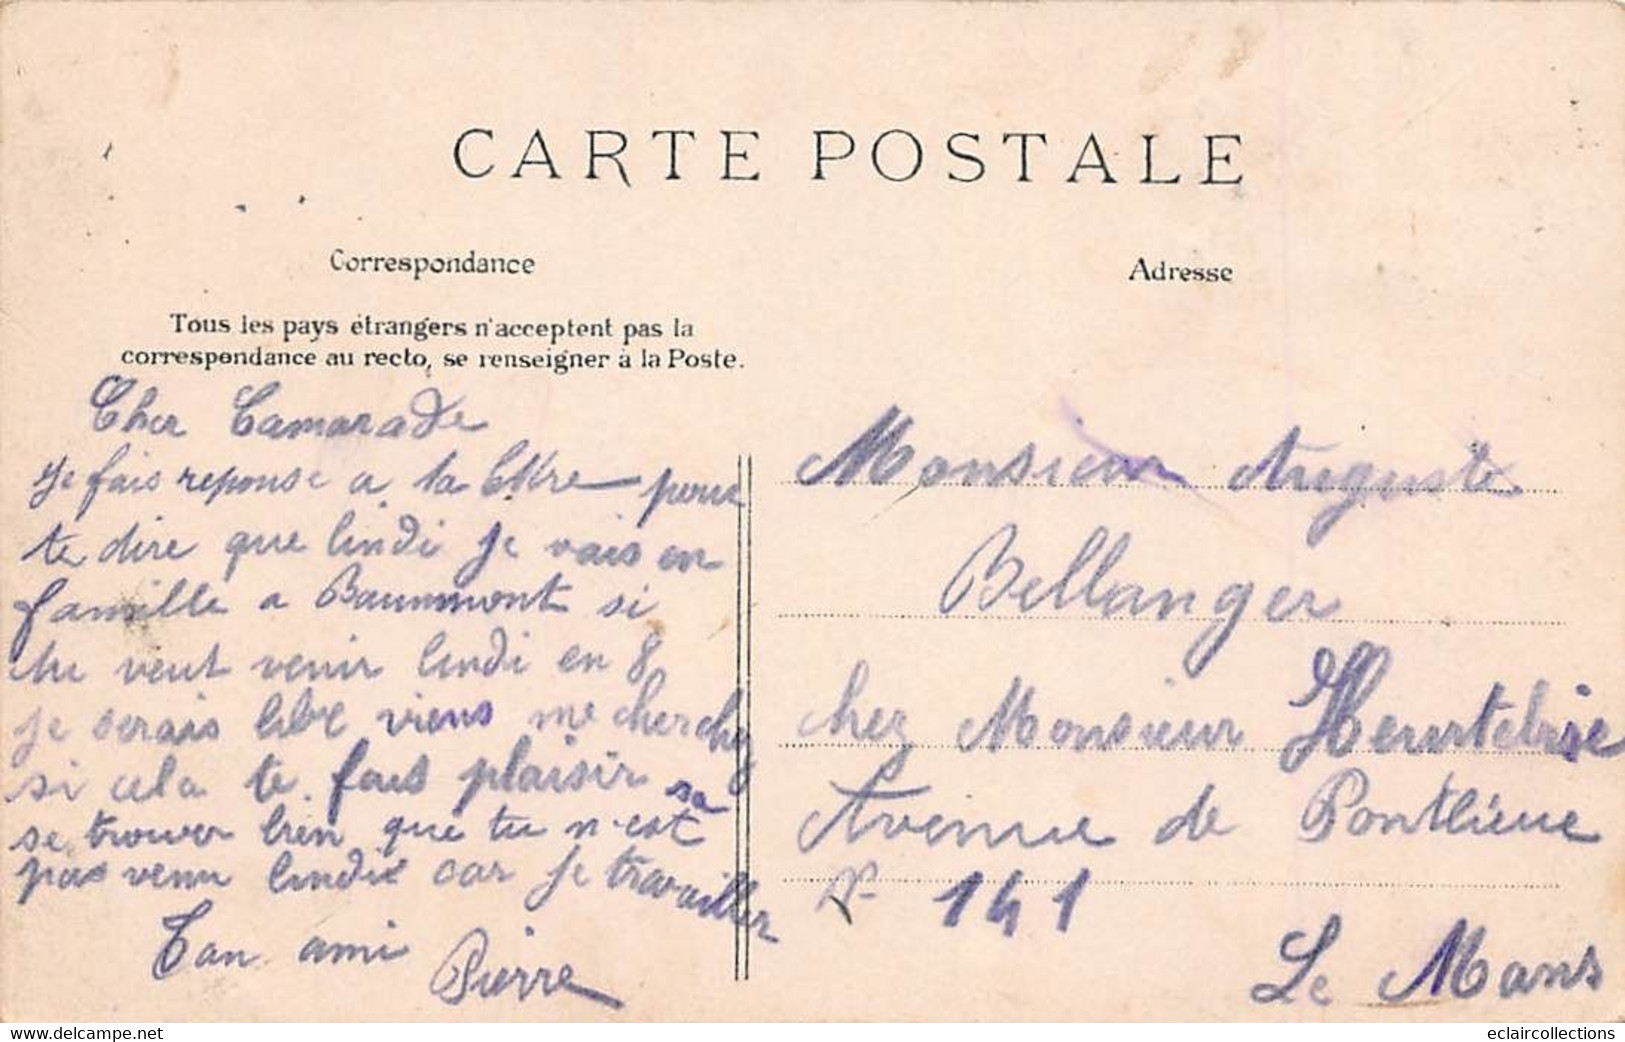 CARTE POSTALE
Correspondance
Adresse
Tous les pays étrangers n'acceptent pas la
correspondance au recto, se renseigner à la Poste.
Cher Camarade
Je fais reponse a ta lettre pour
te dire que lindi je vais en
famille a Baummont si
tu veut venir lindi en 8
je serais libre viens me cherchez
si cela te fais plaisir sa
se trouver bien que tu n'est
pas venu lindi car je travailler
Ton ami
Pierre
Monsieur Auguste
Bellanger
chez Monsieur Heurtebise
Avenue de Pontlieue
N° 141
Le Mans
delcampe.net
eclaircollections